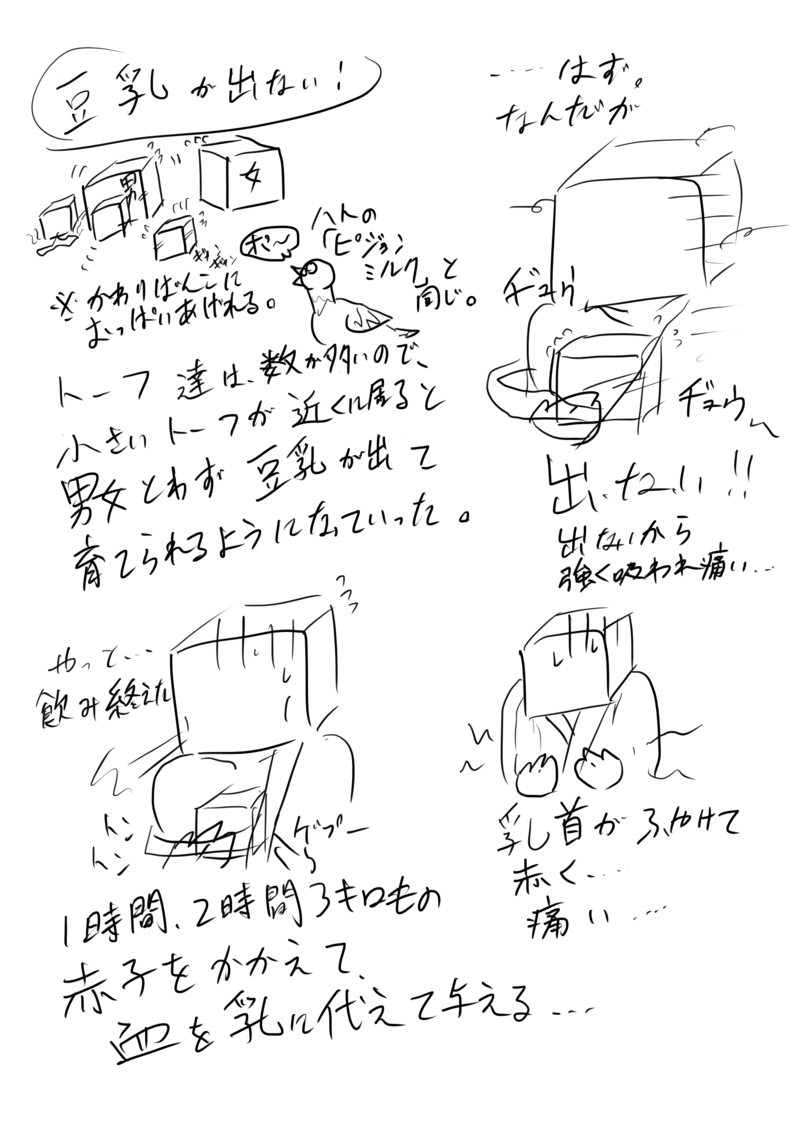 豆乳が出ない!
男
女
ギャン
ギャン
※かわりばんこに
おっぱいあげれる。
ポ〜
ハトの
「ピジョン
ミルク」と
同じ。
トーフ達は、数が多いので、
小さいトーフが近くに居ると
男女とわず豆乳が出て
育てられるようになっていった。
……はず。
なんだが
ヂュウ
ヂュウ
出、ない!!
出ないから
強く吸われ痛い…
やっと…
飲み終えた
トン
トン
ゲプー
1時間、2時間3キロもの
赤子をかかえて、
血を乳に代えて与える…
乳首がふやけて
赤く……
痛い……